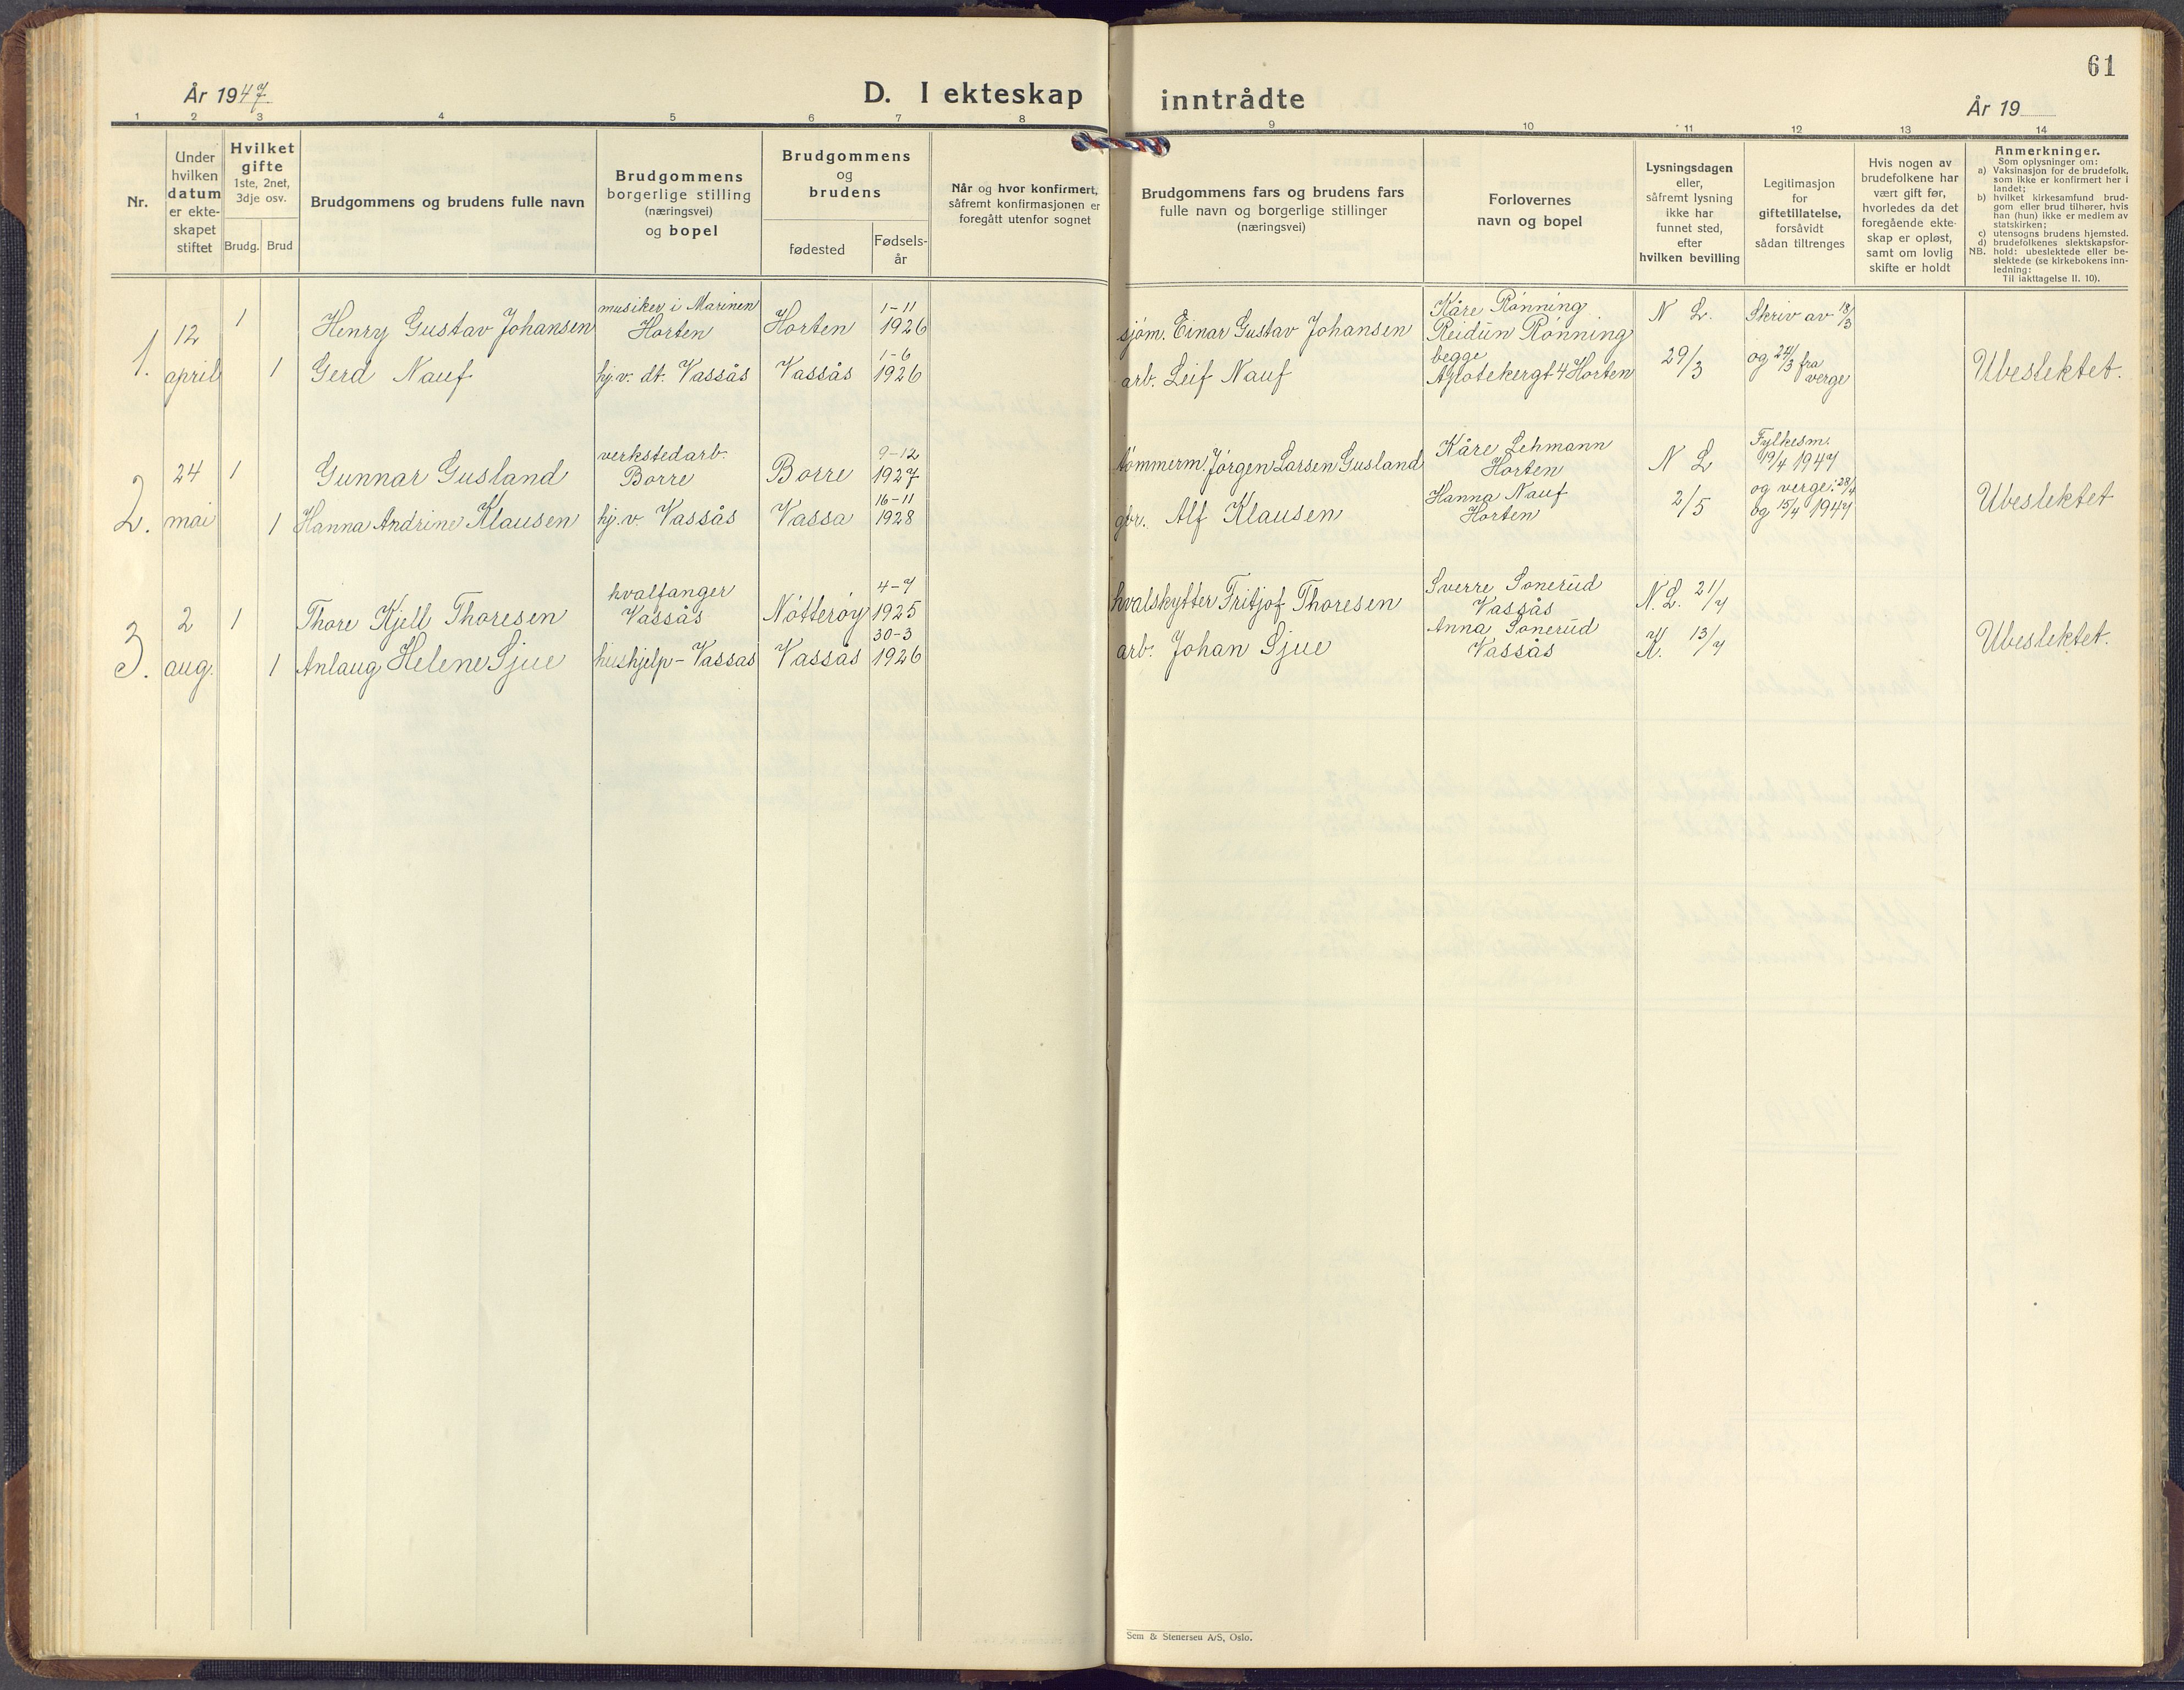 År 1947
D. I ekteskap
inntrådte
61
År 19
1 2 3 4 5 6 7 8
9 10 11 12 13 14
Nr.
Under
hvilken
datum
er ekte-
skapet
stiftet
Hvilket
gifte
1ste, 2net,
3dje osv.
Brudg. Brud
Brudgommens og brudens fulle navn
Brudgommens
borgerlige stilling
(næringsvei)
og bopel
Brudgommens
og
brudens
fødested
Fødsels-
år
Når og hvor konfirmert,
såfremt konfirmasjonen er
foregått utenfor sognet
Brudgommens fars og brudens fars
fulle navn og borgerlige stillinger
(næringsvei)
Forlovernes
navn og bopel
Lysningsdagen
eller,
såfremt lysning
ikke har
funnet sted,
efter
hvilken bevilling
Legitimasjon
for
giftetillatelse,
forsåvidt
sådan tiltrenges
Hvis nogen av
brudefolkene har
vært gift før,
hvorledes da det
foregående ekte-
skap er opløst,
samt om lovlig
skifte er holdt
Anmerkninger.
Som oplysninger om:
a) Vaksinasjon for de brudefolk,
som ikke er konfirmert her i
landet;
b) hvilket kirkesamfund brud-
gom eller brud tilhører, hvis
han (hun) ikke er medlem av
statskirken;
c) utensogns brudens hjemsted.
d) brudefolkenes slektskapsfor-
NB. hold: ubeslektede eller be-
slektede (se kirkebokens inn-
ledning:
Til iakttagelse II. 10).
1.
12
april
1
Henry Gustav Johansen
musiker i Marinen
Horten
Horten
1-11
1926
1
Gerd Nauf
hj.v. dt. Vassås
Vassås
1-6
1926
sjøm. Einar Gustav Johansen
arb. Leif Nauf
Kåre Rønning
Reidun Rønning
begge
Apotekergt 4 Horten
N L.
29/3
Skriv av 18/3
og 24/3 fra
verge
Ubeslektet.
2.
24
mai
1
Gunnar Gusland
verkstedarb.
Borre
Borre
9-12
1927
1
Hanna Andrine Klausen
hj.v. Vassås
Vassa
16-11
1928
tømmerm. Jørgen Larsen Gusland
gbr. Alf Klausen
Kåre Lehmann
Horten
Hanna Nauf
Horten
N L
2/5
Fylkesm.
19/4 1947
og verge: 28/4
og 15/4 1947
Ubeslektet
3.
2
aug.
1
Thore Kjell Thoresen
hvalfanger
Vassås
Nøtterøy
4-7
1925
1
Anlaug Helene Sjue
hushjelp - Vassås
Vassås
30-3
1926
hvalskytter Fritjof Thoresen
arb. Johan Sjue
Sverre Sonerud
Vassås
Anna Sonerud
Vassås
N. L. 21/7
K. 13/7
Ubeslektet.
Sem & Stenersen A/S, Oslo.